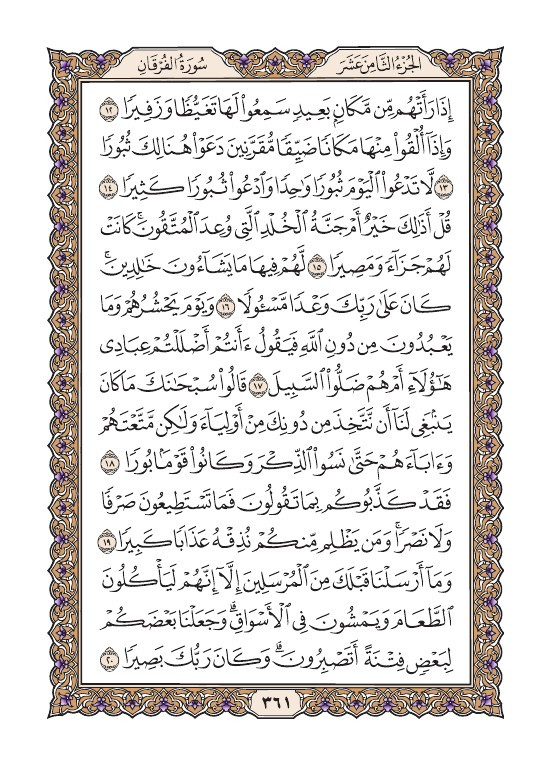 الجُزْءُ الثَّامِنَ عَشَرَ
سُورَةُ الفُرْقَانِ
إِذَا رَأَتْهُم مِّن مَّكَانٍۭ بَعِيدٍ سَمِعُوا۟ لَهَا تَغَيُّظًا وَزَفِيرًا ١٢
وَإِذَآ أُلْقُوا۟ مِنْهَا مَكَانًا ضَيِّقًا مُّقَرَّنِينَ دَعَوْا۟ هُنَالِكَ ثُبُورًا
١٣ لَّا تَدْعُوا۟ الْيَوْمَ ثُبُورًا وَٰحِدًا وَادْعُوا۟ ثُبُورًا كَثِيرًا ١٤
قُلْ أَذَٰلِكَ خَيْرٌ أَمْ جَنَّةُ الْخُلْدِ الَّتِى وُعِدَ الْمُتَّقُونَ ۚ كَانَتْ
لَهُمْ جَزَآءً وَمَصِيرًا ١٥ لَّهُمْ فِيهَا مَا يَشَآءُونَ خَٰلِدِينَ ۚ
كَانَ عَلَىٰ رَبِّكَ وَعْدًا مَّسْـُٔولًا ١٦ وَيَوْمَ يَحْشُرُهُمْ وَمَا
يَعْبُدُونَ مِن دُونِ اللَّهِ فَيَقُولُ ءَأَنتُمْ أَضْلَلْتُمْ عِبَادِى
هَٰٓؤُلَآءِ أَمْ هُمْ ضَلُّوا۟ السَّبِيلَ ١٧ قَالُوا۟ سُبْحَٰنَكَ مَا كَانَ
يَنۢبَغِى لَنَآ أَن نَّتَّخِذَ مِن دُونِكَ مِنْ أَوْلِيَآءَ وَلَٰكِن مَّتَّعْتَهُمْ
وَءَابَآءَهُمْ حَتَّىٰ نَسُوا۟ الذِّكْرَ وَكَانُوا۟ قَوْمًۢا بُورًا ١٨
فَقَدْ كَذَّبُوكُم بِمَا تَقُولُونَ فَمَا تَسْتَطِيعُونَ صَرْفًا
وَلَا نَصْرًا ۚ وَمَن يَظْلِم مِّنكُمْ نُذِقْهُ عَذَابًا كَبِيرًا ١٩
وَمَآ أَرْسَلْنَا قَبْلَكَ مِنَ الْمُرْسَلِينَ إِلَّآ إِنَّهُمْ لَيَأْكُلُونَ
الطَّعَامَ وَيَمْشُونَ فِى الْأَسْوَاقِ ۗ وَجَعَلْنَا بَعْضَكُمْ
لِبَعْضٍ فِتْنَةً أَتَصْبِرُونَ ۗ وَكَانَ رَبُّكَ بَصِيرًا ٢٠
٣٦١